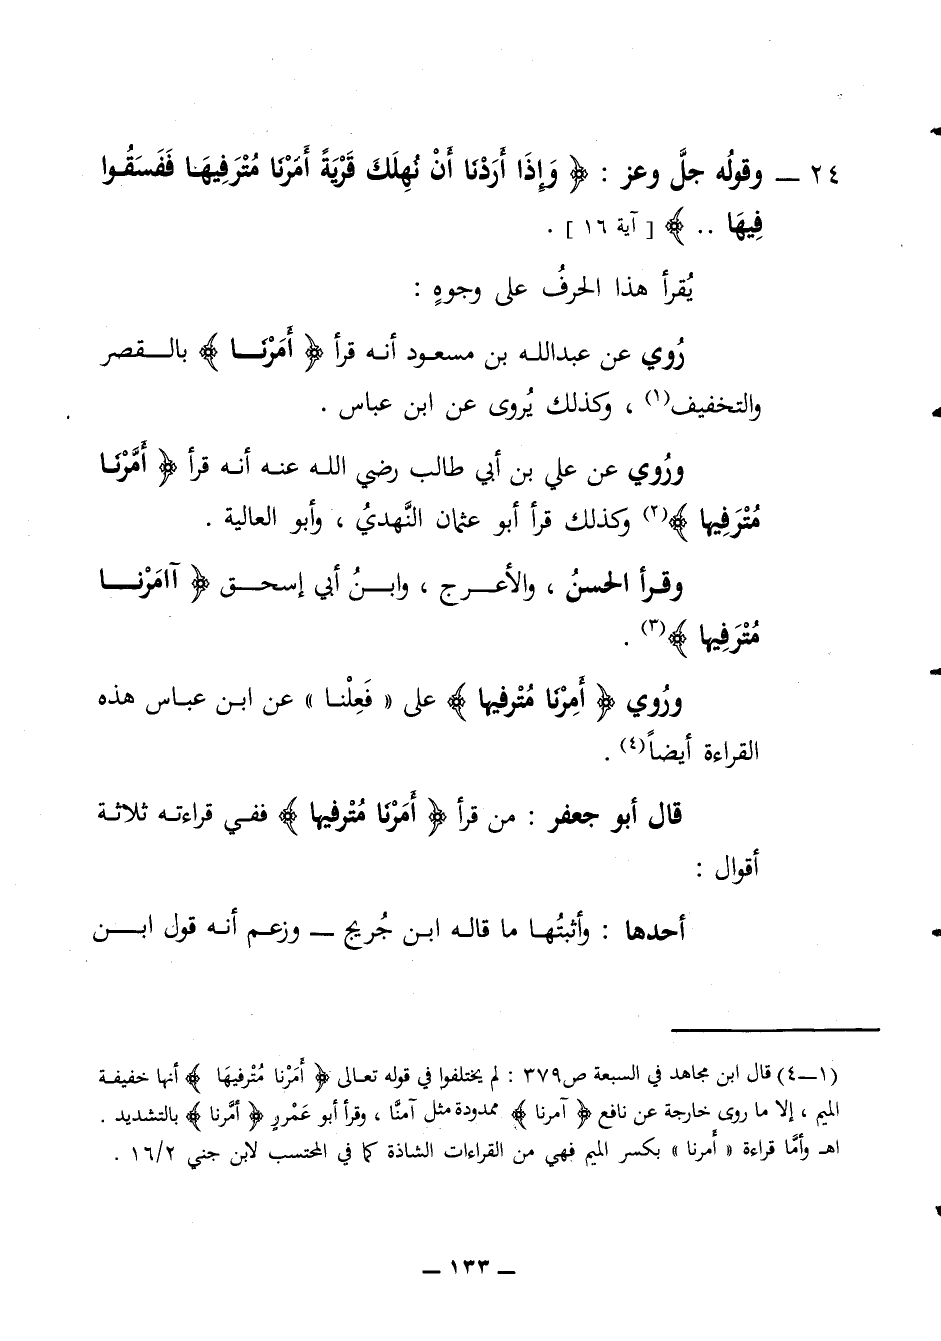 ٢٤ ــ وقولُه جلَّ وعز : ﴿ وَإِذَا أَرَدْنَا أَنْ نُهلَكَ قَرْيَةً أَمَرْنَا مُتْرَفِيهَا فَفَسَقُوا
فِيهَا .. ﴾ [ آية ١٦ ] .
يُقرأ هذا الحرفُ على وجوهٍ :
رُوي عن عبدالله بن مسعود أنه قرأ ﴿ أَمَرْنَا ﴾ بالقصر
والتخفيف(١) ، وكذلك يُروى عن ابن عباس .
ورُوي عن علي بن أبي طالب رضي الله عنه أنه قرأ ﴿ أَمَّرْنَا
مُتْرَفِيها ﴾(٢) وكذلك قرأ أبو عثمان النَّهديُ ، وأبو العالية .
وقرأ الحسنُ ، والأعرج ، وابنُ أبي إسحق ﴿ آامَرْنا
مُتْرَفِيها ﴾(٣) .
ورُوي ﴿ أَمِرْنَا مُتْرفيها ﴾ على « فَعِلْنا » عن ابن عباس هذه
القراءة أيضاً(٤) .
قال أبو جعفر : من قرأ ﴿ أَمَرْنَا مُتْرفيها ﴾ ففي قراءته ثلاثة
أقوال :
أحدها : وأثبتُها ما قاله ابن جُريج ــ وزعم أنه قول ابن
(١ــ٤) قال ابن مجاهد في السبعة ص٣٧٩ : لم يختلفوا في قوله تعالى ﴿ أَمَرْنا مُتْرفيهَا ﴾ أنها خفيفة
الميم ، إلا ما روى خارجة عن نافع ﴿ آمرنا ﴾ ممدودة مثل آمنَّا ، وقرأ أبو عَمْررٍ ﴿ أمَّرنا ﴾ بالتشديد .
اهـ وأمَّا قراءة « أَمرنا » بكسر الميم فهي من القراءات الشاذة كما في المحتسب لابن جني ١٦/٢ .
ــ ١٣٣ ــ